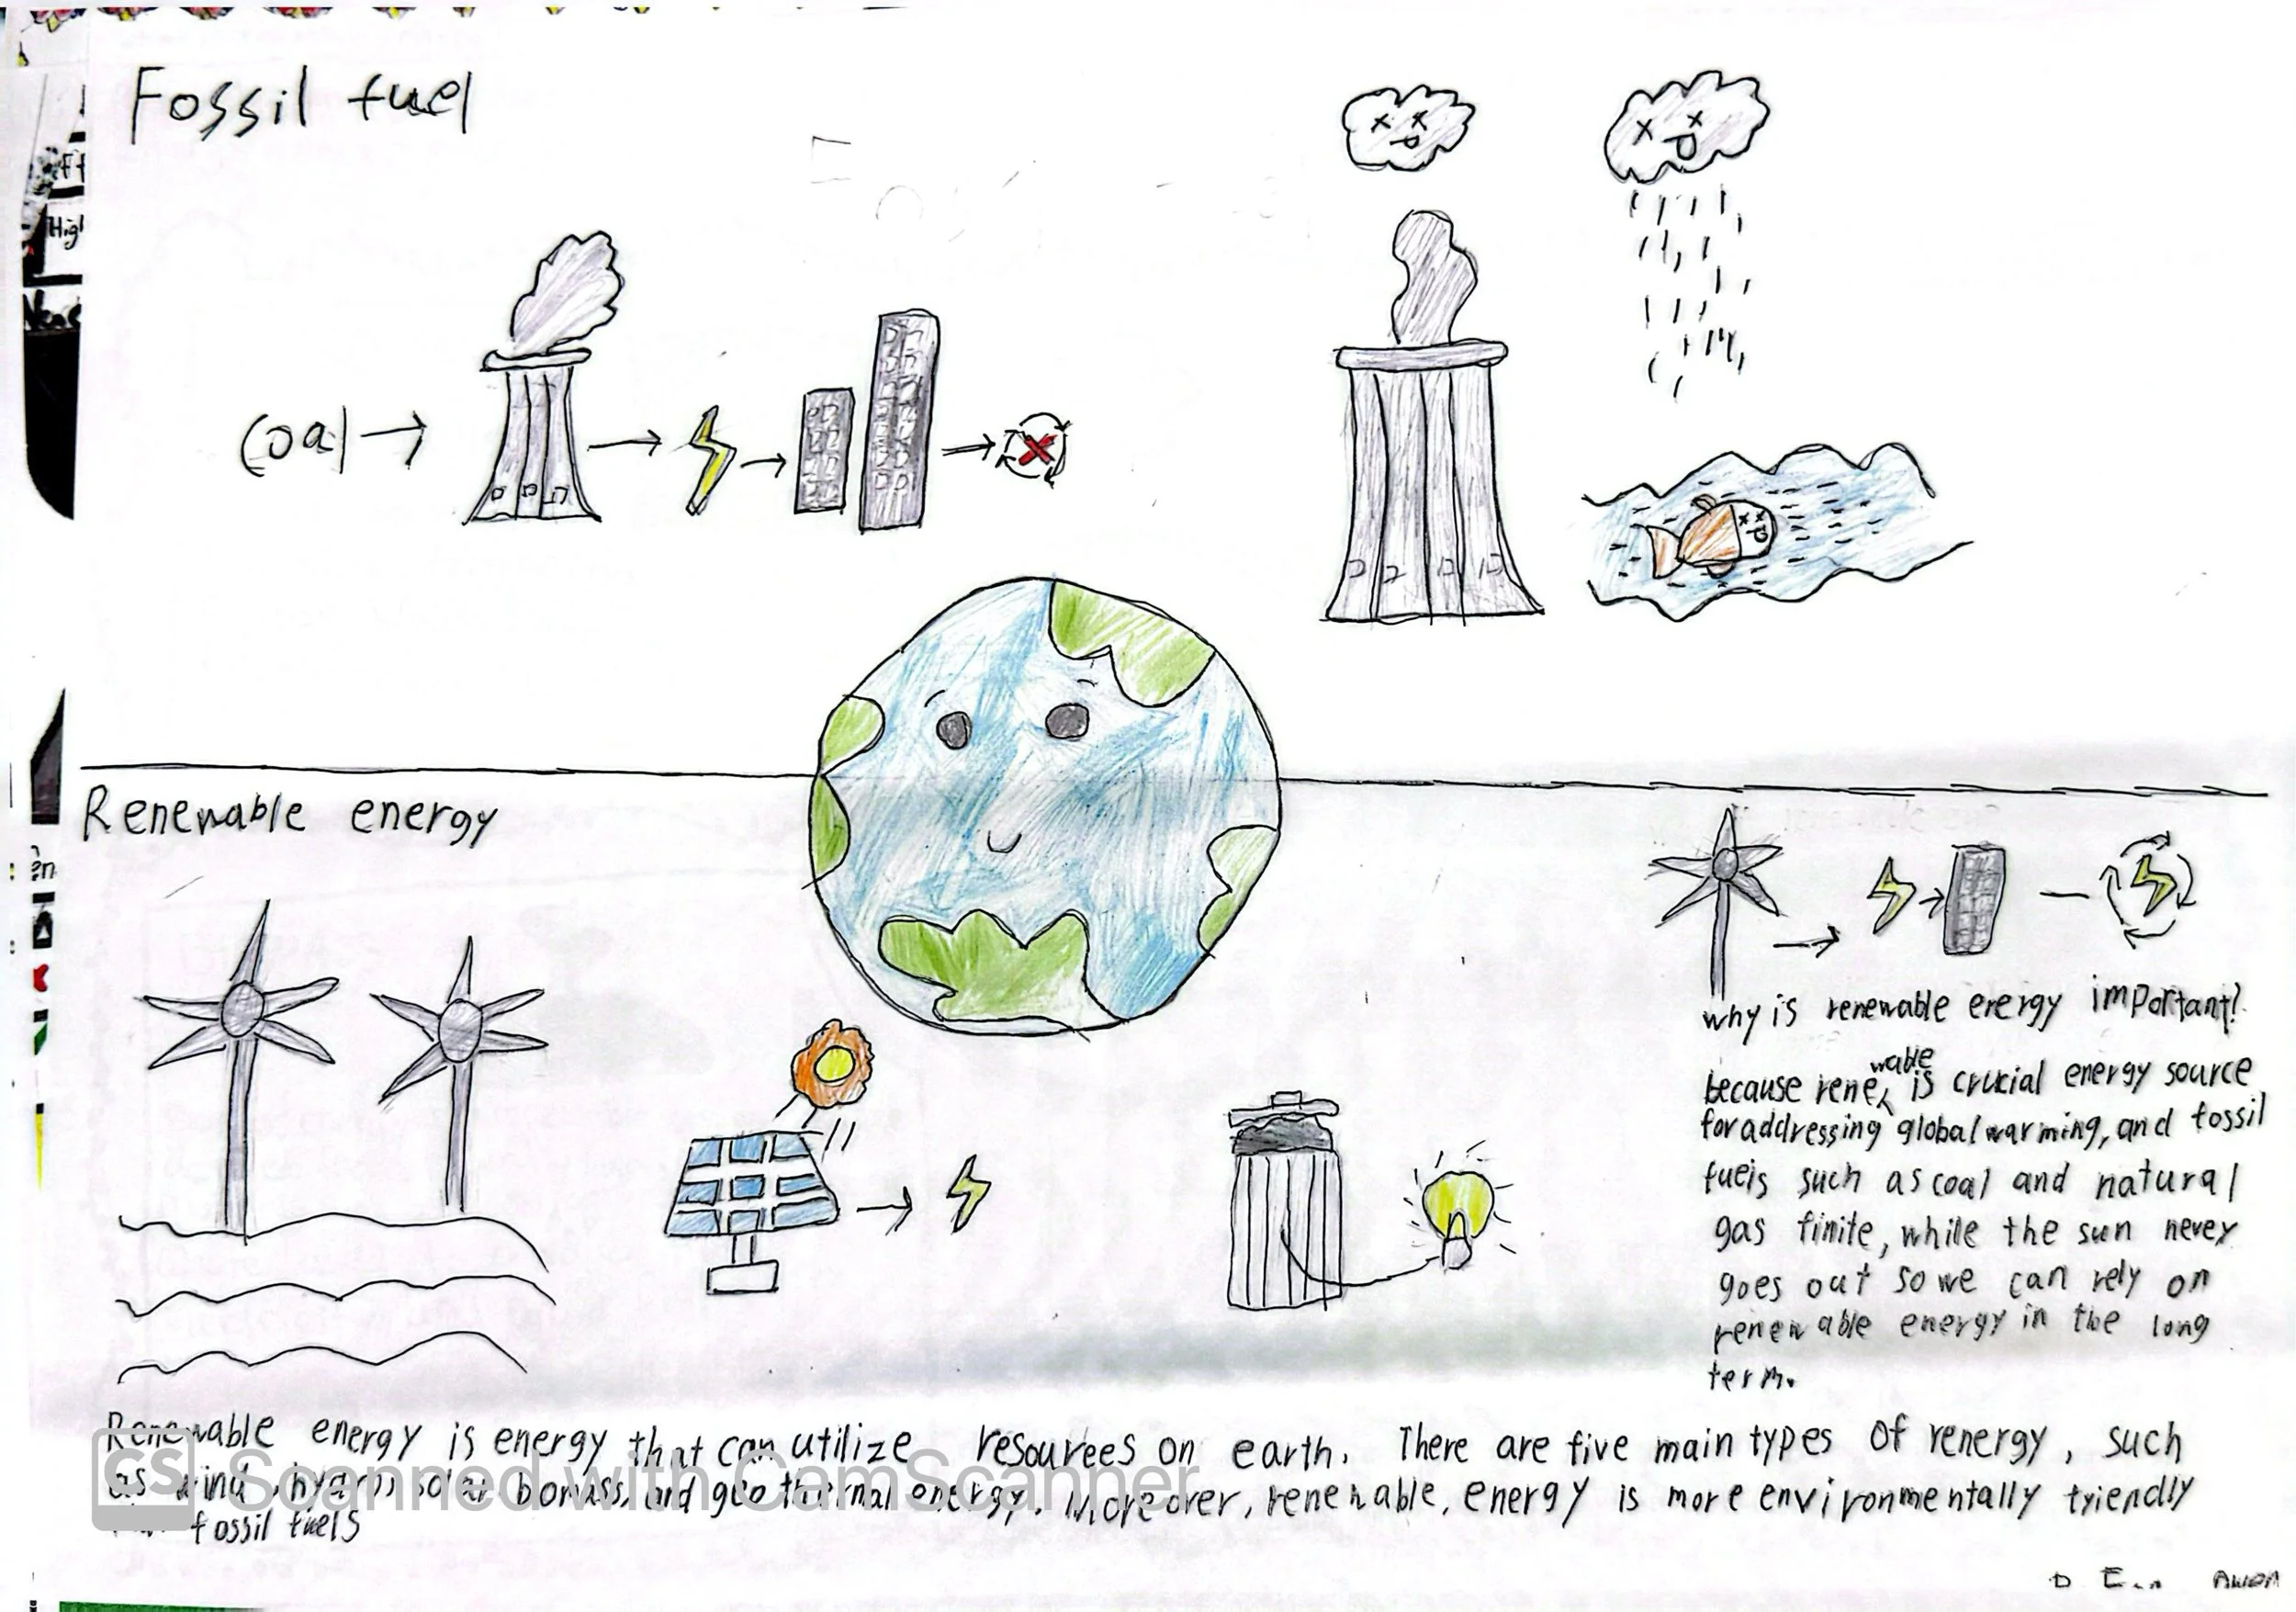 Fossil fuel
Coal
Renewable energy
why is renewable energy important?
because renewable is crucial energy source
for addressing global warming, and fossil
fuels such as coal and natural
gas finite, while the sun never
goes out so we can rely on
renewable energy in the long
term.
Renewable energy is energy that can utilize resources on earth. There are five main types of renergy, such
as wind, hydro, solar, biomass, and geothermal energy. Moreover, renewable, energy is more environmentally friendly
fossil fuels
CS Scanned with CamScanner